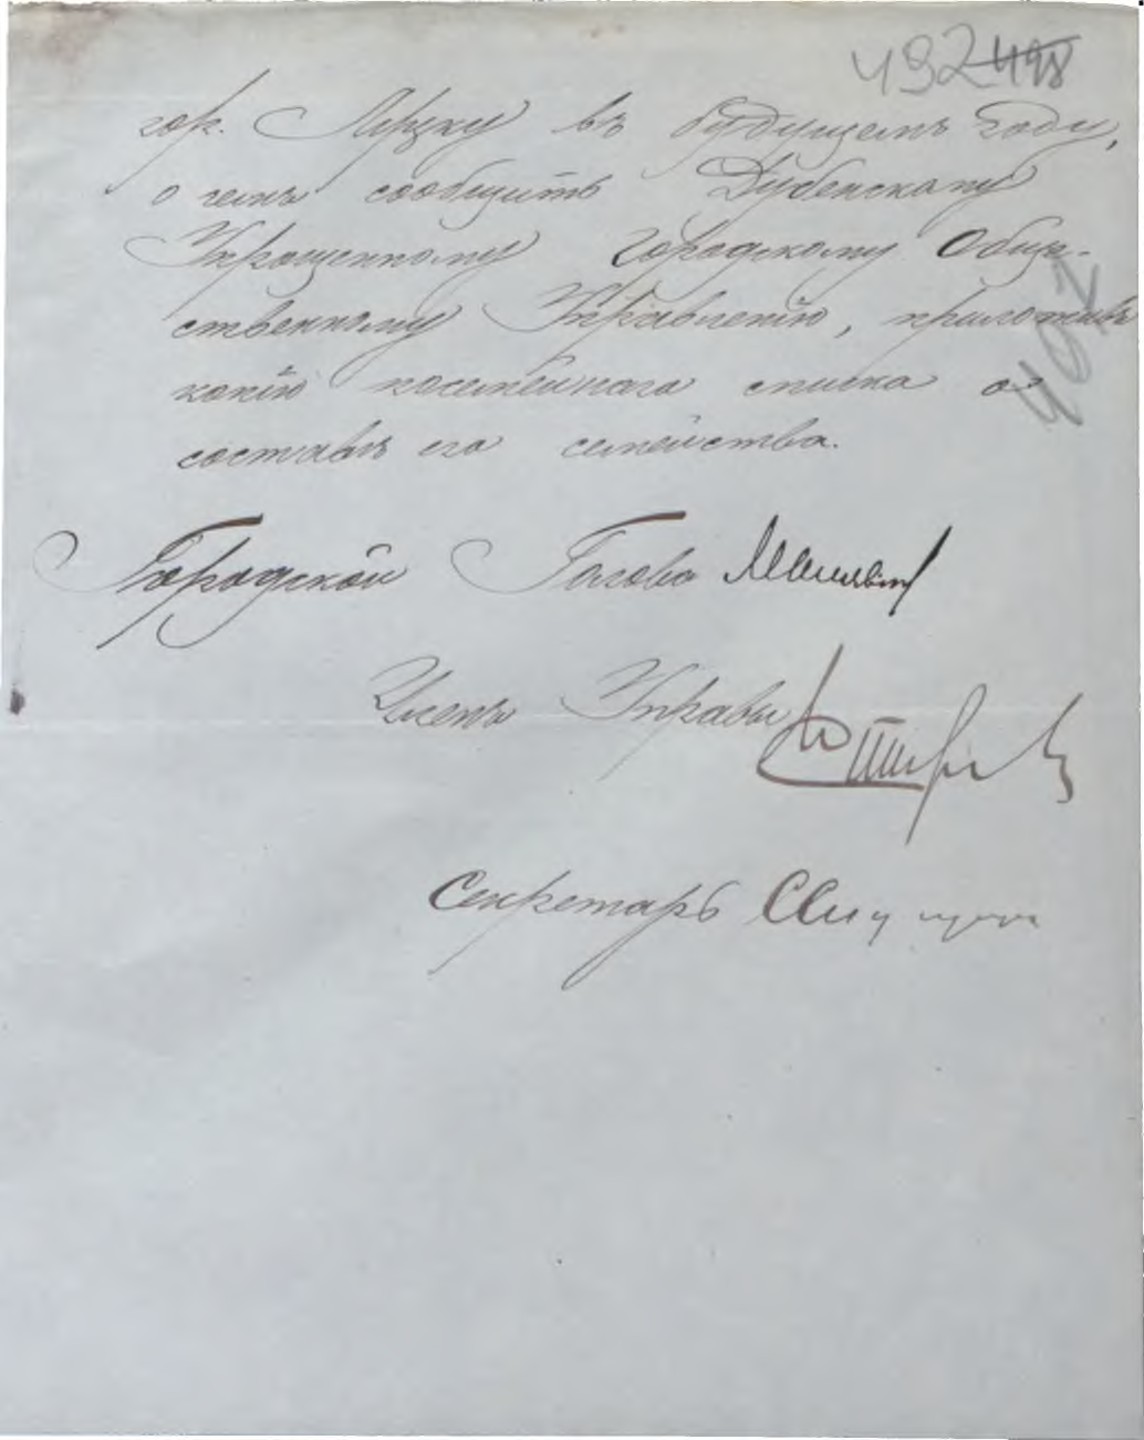 492 498
гор. Луцку въ будущемъ году,
о чемъ сообщить Дубенскому
Упрощенному Городскому Общε-
ственному Управленію, приложивъ
492
копію посемейнаго списка о
составѣ его семейства.
Городской Голова
Членъ Управы
Секретарь